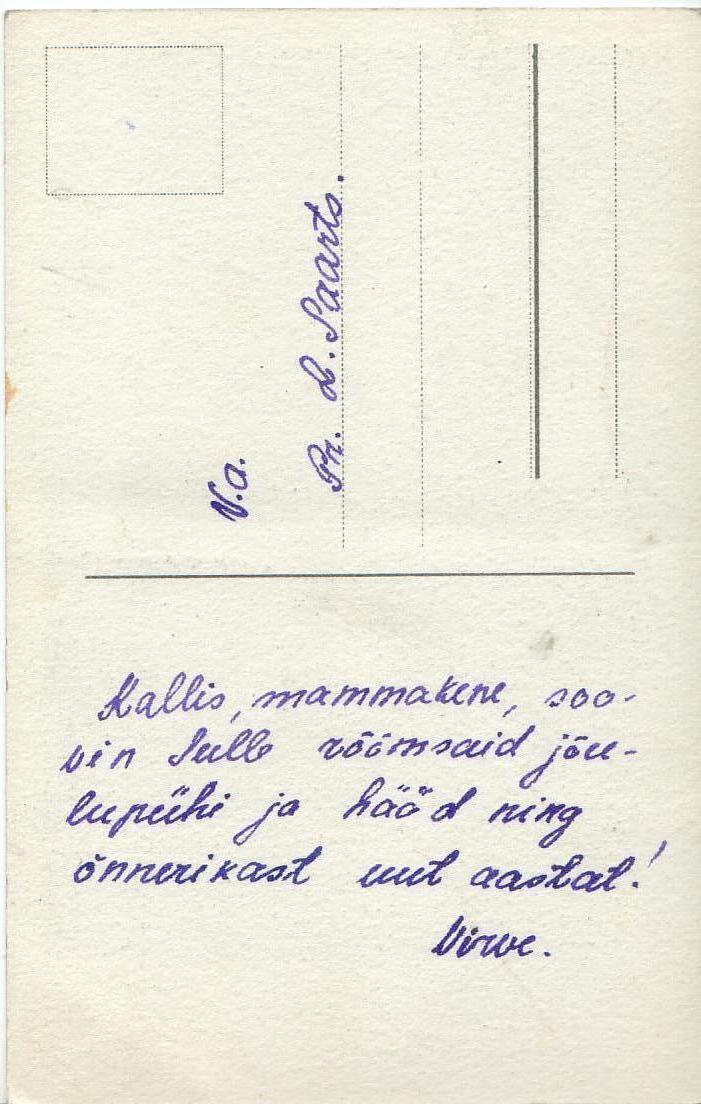 V.a.
Pr. L. Saarts.
Kallis, mammakene, soo-
vin Sulle rõõmsaid jõu-
lupühi ja hääd ning
õnnerikast uut aastat!
Virve.